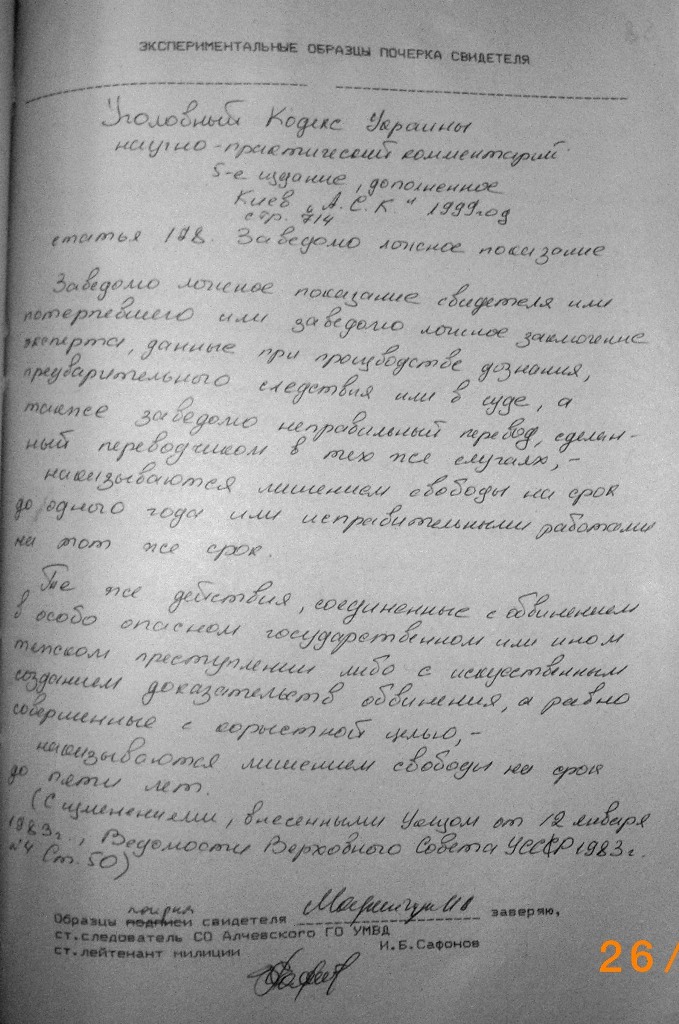 ЭКСПЕРИМЕНТАЛЬНЫЕ ОБРАЗЦЫ ПОЧЕРКА СВИДЕТЕЛЯ
Уголовный Кодекс Украины
научно-практический комментарий
5-е издание, дополненное
Киев „А.С.К." 1999год
стр. 714
статья 178. Заведомо ложное показание
Заведомо ложное показание свидетеля или
потерпевшего или заведомо ложное заключение
эксперта, данные при производстве дознания,
предварительного следствия или в суде, а
также заведомо неправильный перевод, сделан-
ный переводчиком в тех же случаях,-
наказываются лишением свободы на срок
до одного года или исправительными работами
на тот же срок.
Те же действия, соединенные с обвинением
в особо опасном государственном или ином
тяжском преступлении либо с искуственным
созданием доказательств обвинения, а равно
совершенные с корыстной целью,-
наказываются лишением свободы на срок
до пяти лет.
(С изменениями, внесенными Указом от 12 января
1983г., Ведомости Верховного Совета УССР 1983г.
№4 Ст. 50)
Образцы подписи свидетеля заверяю,
ст.следователь СО Алчевского ГО УМВД
ст.лейтенант милиции И.Б.Сафонов
26/